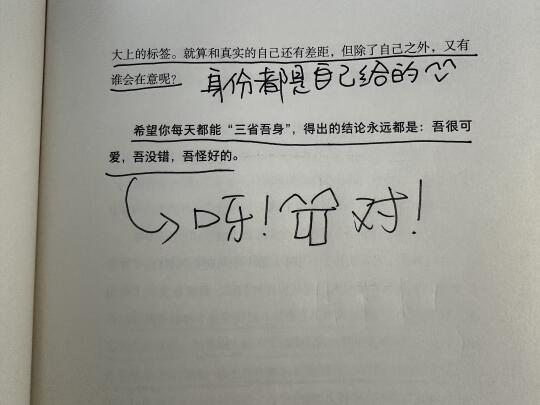 大上的标签。就算和真实的自己还有差距，但除了自己之外，又有
谁会在意呢？
身份都是自己给的
希望你每天都能“三省吾身”，得出的结论永远都是：吾很可
爱，吾没错，吾怪好的。
呀！对！